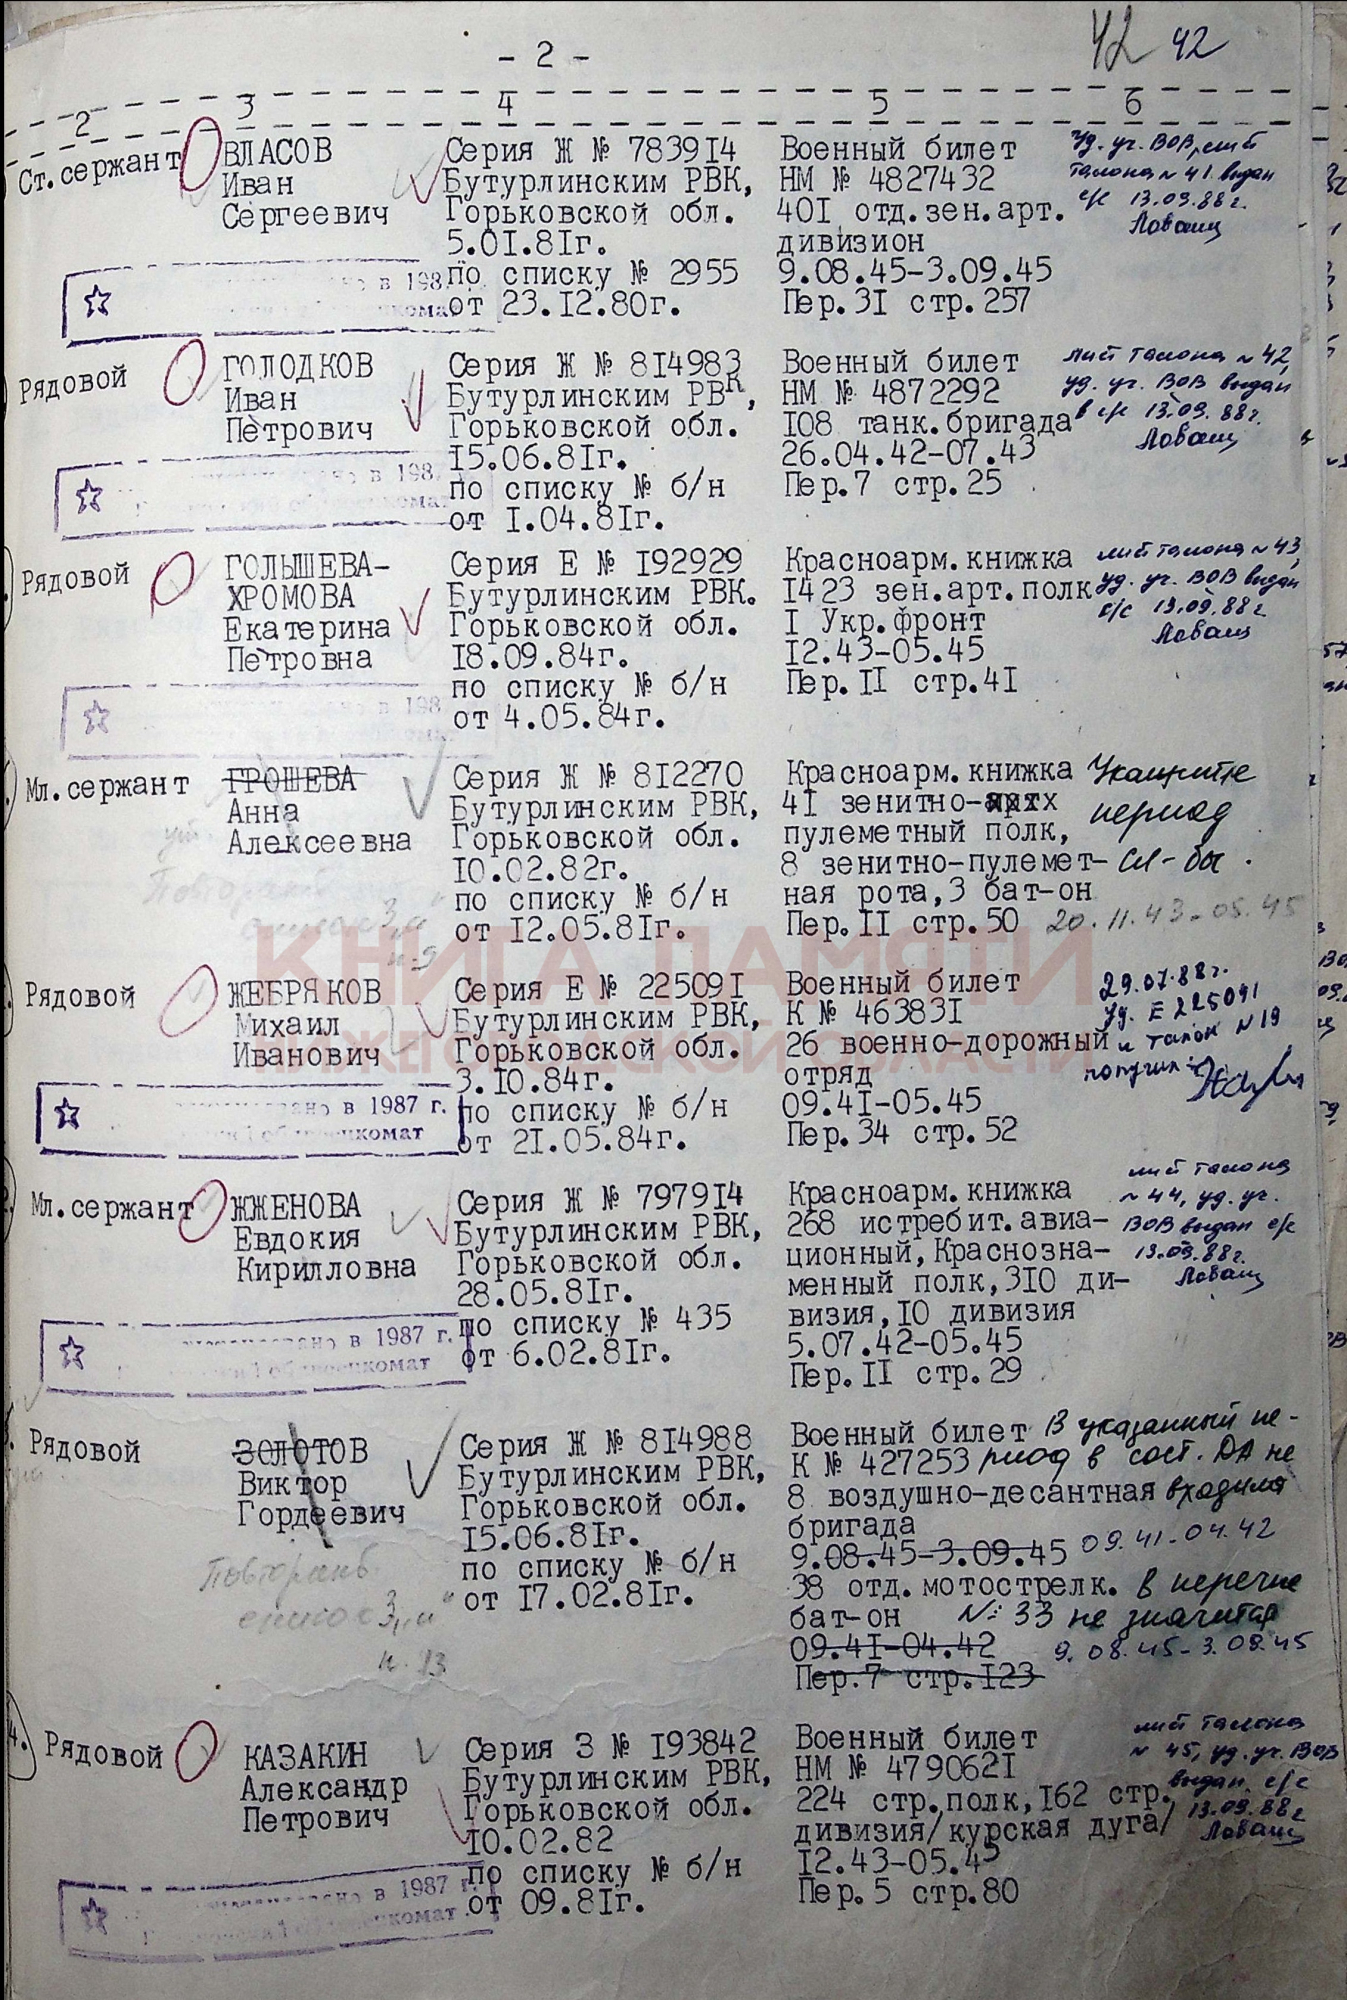 - 2 -
42 42
2 3 4 5 6
Ст.сержант
ВЛАСОВ
Иван
Сергеевич
Серия Ж № 783914
Бутурлинским РВК,
Горьковской обл.
5.01.81г.
по списку № 2955
от 23.12.80г.
Военный билет
НМ № 4827432
401 отд.зен.арт.
дивизион
9.08.45-3.09.45
Пер.31 стр.257
Уд. уч. ВОВ, лист
талона № 41 выдан
с/с 13.09.88г.
в 198
Рядовой
ГОЛОДКОВ
Иван
Петрович
Серия Ж № 814983
Бутурлинским РВК,
Горьковской обл.
15.06.81г.
по списку № б/н
от 1.04.81г.
Военный билет
НМ № 4872292
108 танк.бригада
26.04.42-07.43
Пер.7 стр.25
лист талона № 42,
уд. уч. ВОВ выдан
в с/с 13.09.88г.
в 198
Рядовой
ГОЛЫШЕВА-
ХРОМОВА
Екатерина
Петровна
Серия Е № 192929
Бутурлинским РВК.
Горьковской обл.
18.09.84г.
по списку № б/н
от 4.05.84г.
Красноарм.книжка
1423 зен.арт.полк
I Укр.фронт
12.43-05.45
Пер.II стр.41
лист талона № 43,
уд. уч. ВОВ выдан
с/с 13.09.88г
198
Мл.сержант
ГРОШЕВА
Анна
Алексеевна
Серия Ж № 812270
Бутурлинским РВК,
Горьковской обл.
10.02.82г.
по списку № б/н
от 12.05.81г.
Красноарм.книжка
41 зенитно-
пулеметный полк,
8 зенитно-пулемет-
ная рота,3 бат-он
Пер.II стр.50
период
сл-бы.
20.11.43-05.45
КНИГА ПАМЯТИ
НИЖЕГОРОДСКОЙ ОБЛАСТИ
Рядовой
ЖЕБРЯКОВ
Михаил
Иванович
Серия Е № 225091
Бутурлинским РВК,
Горьковской обл.
3.10.84г.
по списку № б/н
от 21.05.84г.
Военный билет
К № 463831
26 военно-дорожный
отряд
09.41-05.45
Пер.34 стр.52
29.07.88г.
уд. Е 225091
и талон № 19
получил
в 1987 г.
Мл.сержант
ЖЖЕНОВА
Евдокия
Кирилловна
Серия Ж № 797914
Бутурлинским РВК,
Горьковской обл.
28.05.81г.
по списку № 435
от 6.02.81г.
Красноарм.книжка
268 истребит.авиа-
ционный,Краснозна-
менный полк,310 ди-
визия,10 дивизия
5.07.42-05.45
Пер.II стр.29
лист талона
№ 44, уд. уч.
ВОВ выдан с/с
13.09.88г.
в 1987 г.
Рядовой
ЗОЛОТОВ
Виктор
Гордеевич
Серия Ж № 814988
Бутурлинским РВК,
Горьковской обл.
15.06.81г.
по списку № б/н
от 17.02.81г.
Военный билет
К № 427253
8 воздушно-десантная
бригада
9.08.45-3.09.45
38 отд.мотострелк.
бат-он
09.41-04.42
Пер.7 стр.123
В указанный пе-
риод в сост. ДА не
входила
09.41-04.42
в перечне
№ 33 не значится
9.08.45-3.09.45
Рядовой
КАЗАКИН
Александр
Петрович
Серия З № 193842
Бутурлинским РВК,
Горьковской обл.
10.02.82
по списку № б/н
от 09.81г.
Военный билет
НМ № 4790621
224 стр.полк,162 стр.
дивизия/курская дуга/
12.43-05.45
Пер.5 стр.80
лист талона
№ 45, уд. уч. ВОВ
выдан с/с
13.09.88г
в 1987 г.